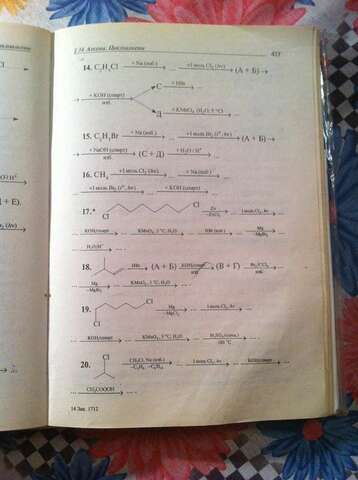 5.14. Алканы. Циклоалканы 417
14. C₂H₅Cl + Na (изб.) → ... +1 моль Cl₂ (hν) → (А + Б) →
+ KOH (спирт) изб. → С + HBr → ...
Д + KMnO₄ (H₂O; 5 °C) → ...
15. C₂H₅Br + Na (изб.) → ... +1 моль Br₂ (t°, hν) → (А + Б) →
+ NaOH (спирт) изб. → (С + Д) + H₂O / H⁺ → ...
16. CH₄ +1 моль Cl₂ (hν) → ... + Na (изб.) → ...
+1 моль Br₂ (t°, hν) → ... + KOH (спирт) → ...
17.* Cl Cl Zn –ZnCl₂ → ... 1 моль Cl₂, hν → ...
KOH/спирт → ... KMnO₄, 5 °C, H₂O → ... HBr (изб.) → ... Mg –MgBr₂ → ...
H₂O/H⁺ → ...
18. HBr → (А + Б) KOH/спирт → (В + Г) Br₂/CCl₄ изб. → ...
Mg –MgBr₂ → ... KMnO₄, 5 °C, H₂O → ...
19. Cl Cl Mg –MgCl₂ → ... 1 моль Cl₂, hν → ...
KOH/спирт → ... KMnO₄, 5 °C, H₂O → ... H₂SO₄(конц.) 180 °C → ...
20. Cl CH₃Cl, Na (изб.) –C₂H₆, –C₆H₁₄ → ... 1 моль Cl₂, hν → ... KOH/спирт → ...
CH₃COOOH → ...
14 Зак. 1712